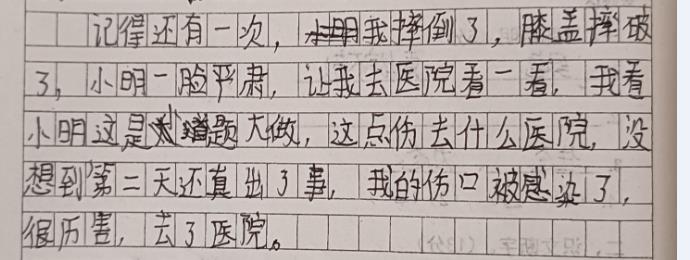 记得还有一次，我摔倒了，膝盖摔破
了，小明一脸严肃，让我去医院看一看，我看
小明这是题大做，这点伤去什么医院，没
想到第二天还真出了事，我的伤口被感染了，
很厉害，去了医院。